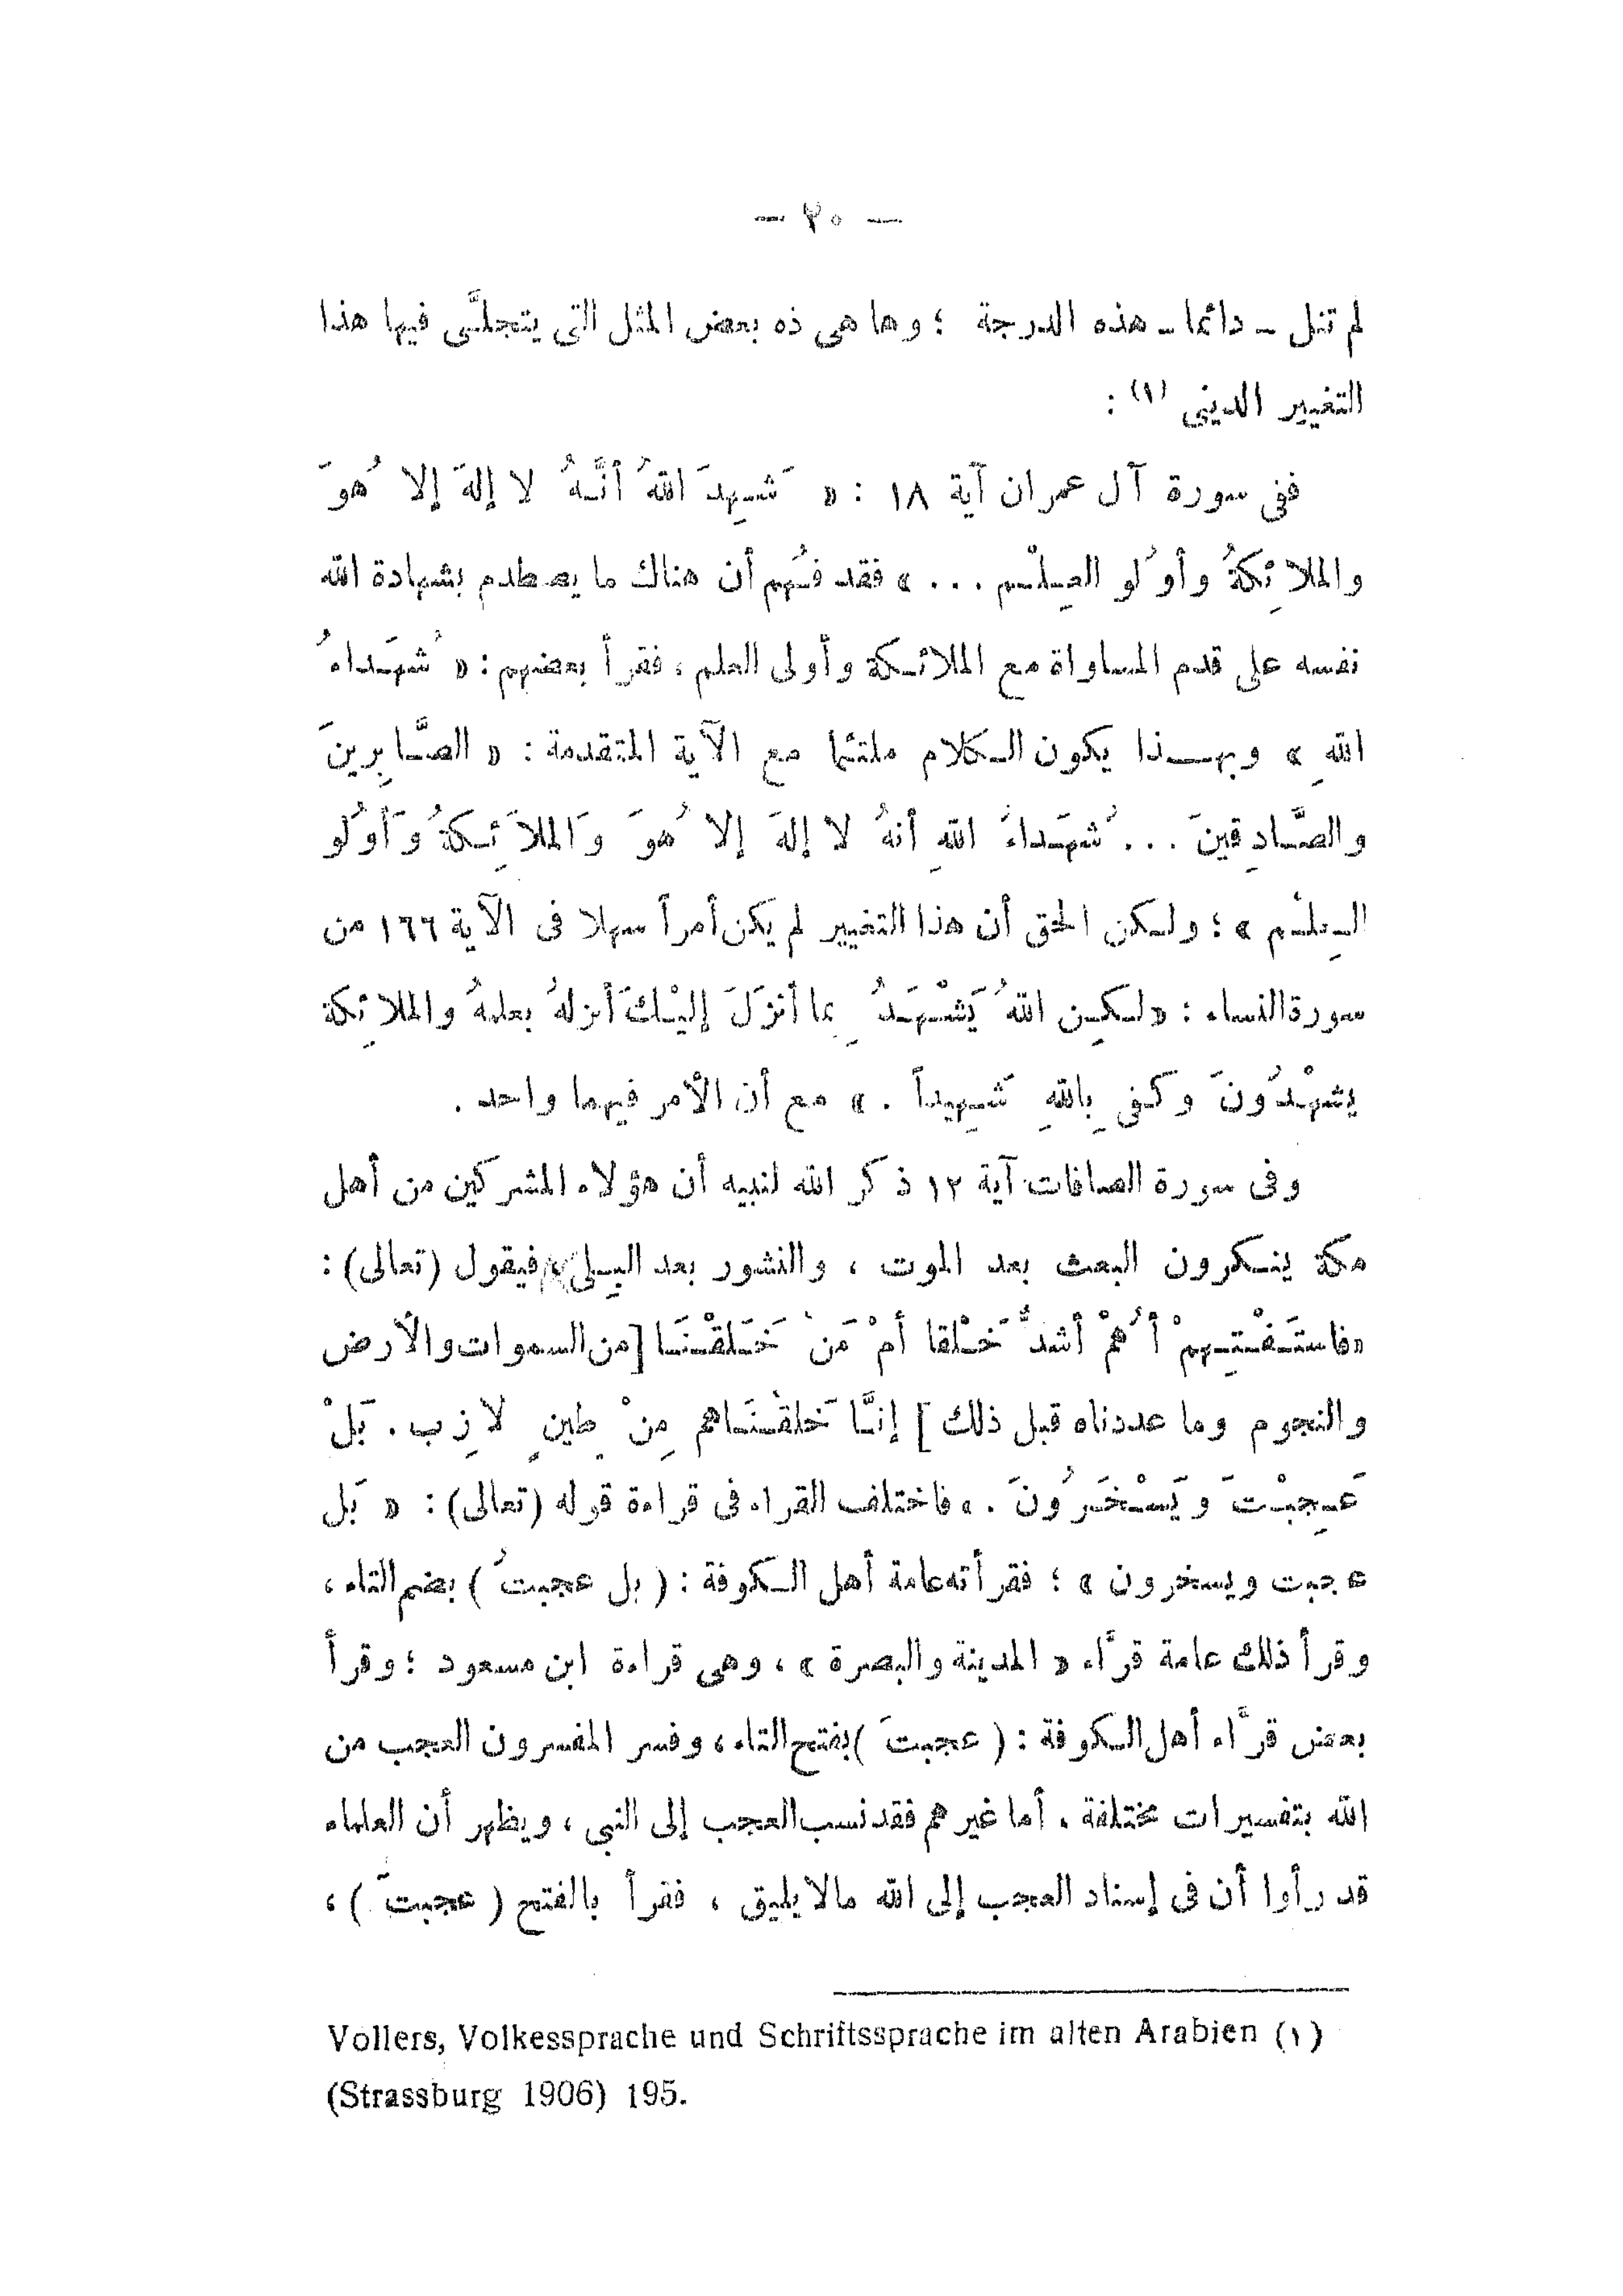 — ٢٠ —
لم تنل - دائما - هذه الدرجة ؛ وها هى ذه بعض المثل التى يتجلَّى فيها هذا
التغيير الدينى (١) :
ففى سورة آل عمران آية ١٨ : « شَهِدَ اللهُ أنَّهُ لا إلهَ إلا هُوَ
والملائِكةُ وأُولو العِلْم ... » فقد فُهم أن هناك ما يصطدم بشهادة الله
نفسه على قدم المساواة مع الملائكة وأولى العلم ، فقرأ بعضهم : « شُهَداءُ
اللهِ » وبهذا يكون الكلام ملتئما مع الآية المتقدمة : « الصَّابِرينَ
والصَّادِقينَ ... شُهَداءَ اللهِ أنهُ لا إلهَ إلا هُوَ وَالملاَئِكةُ وَأُولو
العِلْم » ؛ ولكن الحق أن هذا التغيير لم يكن أمراً سهلا فى الآية ١٦٦ من
سورة النساء : « لكِن اللهُ يَشْهَدُ بِما أنزَلَ إليْكَ أنزلهُ بعلمهُ والملائِكة
يشهْدُونَ وكفى بِاللهِ شَهِيداً . » مع أن الأمر فيهما واحد .
وفى سورة الصافات آية ١٢ ذكر الله لنبيه أن هؤلاء المشركين من أهل
مكة ينكرون البعث بعد الموت ، والنشور بعد البِلى ، فيقول (تعالى) :
« فاستَفْتِهِمْ أهُمْ أشدُّ خَلْقا أمْ مَنْ خَلَقْنَا [ من السموات والأرض
والنجوم وما عددناه قبل ذلك ] إنَّا خَلقْنَاهم مِنْ طِينٍ لازِب . بَلْ
عَجِبْتَ وَيَسْخَرُونَ . » فاختلف القراء فى قراءة قوله (تعالى) : « بَل
عجبت ويسخرون » ؛ فقرأته عامة أهل الكوفة : ( بل عجبتُ ) بضم التاء ،
وقرأ ذلك عامة قرَّاء « المدينة والبصرة » ، وهى قراءة ابن مسعود ؛ وقرأ
بعض قرَّاء أهل الكوفة : ( عجبتَ ) بفتح التاء ، وفسر المفسرون العجب من
الله بتفسيرات مختلفة . أما غيرهم فقد نسب العجب إلى النبى ، ويظهر أن العلماء
قد رأوا أن فى إسناد العجب إلى الله مالا يليق ، فقرأ بالفتح ( عجبتَ ) ،
Vollers, Volkessprache und Schriftssprache im alten Arabien (١)
(Strassburg 1906) 195.